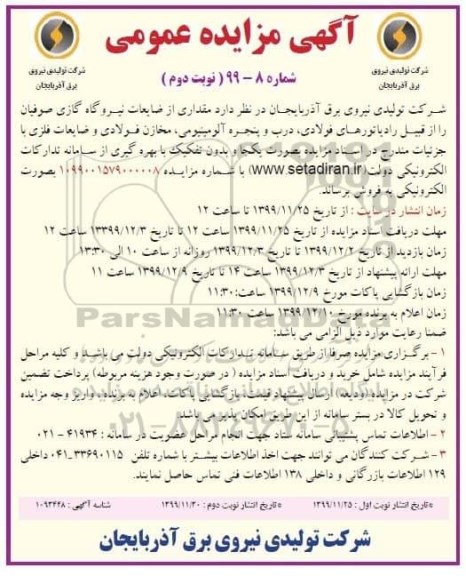 آگهی مزایده عمومی
شماره ۸ - ۹۹ ( نوبت دوم )
شرکت تولیدی نیروی
برق آذربایجان
شرکت تولیدی نیروی
برق آذربایجان
شرکت تولیدی نیروی برق آذربایجان در نظر دارد مقداری از ضایعات نیروگاه گازی صوفیان
را از قبیل رادیاتورهای فولادی، درب و پنجره آلومینیومی، مخازن فولادی و ضایعات فلزی با
جزئیات مندرج در اسناد مزایده بصورت یکجا و بدون تفکیک با بهره گیری از سامانه تدارکات
الکترونیکی دولت(www.setadiran.ir) با شماره مزایده ۱۰۹۹۰۰۱۵۷۹۰۰۰۰۰۸ بصورت
الکترونیکی به فروش برساند.
زمان انتشار در سایت : از تاریخ ۱۳۹۹/۱۱/۲۵ تا ساعت ۱۲
مهلت دریافت اسناد مزایده از تاریخ ۱۳۹۹/۱۱/۲۵ ساعت ۱۲ تا تاریخ ۱۳۳۹۹/۱۲/۳ ساعت ۱۲
زمان بازدید از تاریخ ۱۳۹۹/۱۲/۲ تا تاریخ ۱۳۹۹/۱۲/۳ روزانه از ساعت ۱۰ الی ۱۳:۳۰
مهلت ارائه پیشنهاد از تاریخ ۱۳۹۹/۱۲/۳ ساعت ۱۴ تا تاریخ ۱۳۹۹/۱۲/۹ ساعت ۱۱
زمان بازگشایی پاکات مورخ ۱۳۹۹/۱۲/۹ ساعت:۱۱:۳۰
زمان اعلام به برنده مورخ ۱۳۹۹/۱۲/۱۰ ساعت ۱۱:۳۰
ضمنا رعایت موارد ذیل الزامی می باشد:
۱ - برگزاری مزایده صرفا از طریق سامانه تدارکات الکترونیکی دولت می باشد و کلیه مراحل
فرآیند مزایده شامل خرید و دریافت اسناد مزایده ( در صورت وجود هزینه مربوطه) پرداخت تضمین
شرکت در مزایده (ودیعه) ارسال پیشنهاد قیمت، بازگشایی پاکات، اعلام به برنده، واریز وجه مزایده
و تحویل کالا در بستر سامانه از این طریق امکان پذیر می باشد.
۲ - اطلاعات تماس پشتیبانی سامانه ستاد جهت انجام مراحل عضویت در سامانه : ۴۱۹۳۴ - ۰۲۱
۳ - شرکت کنندگان می توانند جهت اخذ اطلاعات بیشتر با شماره تلفن ۳۳۶۹۰۱۱۵-۰۴۱ داخلی
۱۲۹ اطلاعات بازرگانی و داخلی ۱۳۸ اطلاعات فنی تماس حاصل نمایند.
*تاریخ انتشار نوبت اول : ۱۳۹۹/۱۱/۲۵ *تاریخ انتشار نوبت دوم : ۱۳۹۹/۱۱/۳۰ شناسه آگهی : ۱۰۹۳۴۴۸
شرکت تولیدی نیروی برق آذربایجان
ParsNamadData
۰۲۱-۸۸۳۴۹۶۷۰-۵